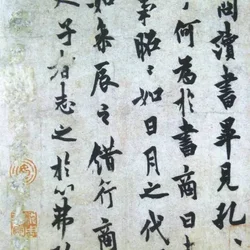 商讀書畢見孔
何為於書商曰
事昭〻如日月之代
如參辰之錯行商
夫子者志之於心弗